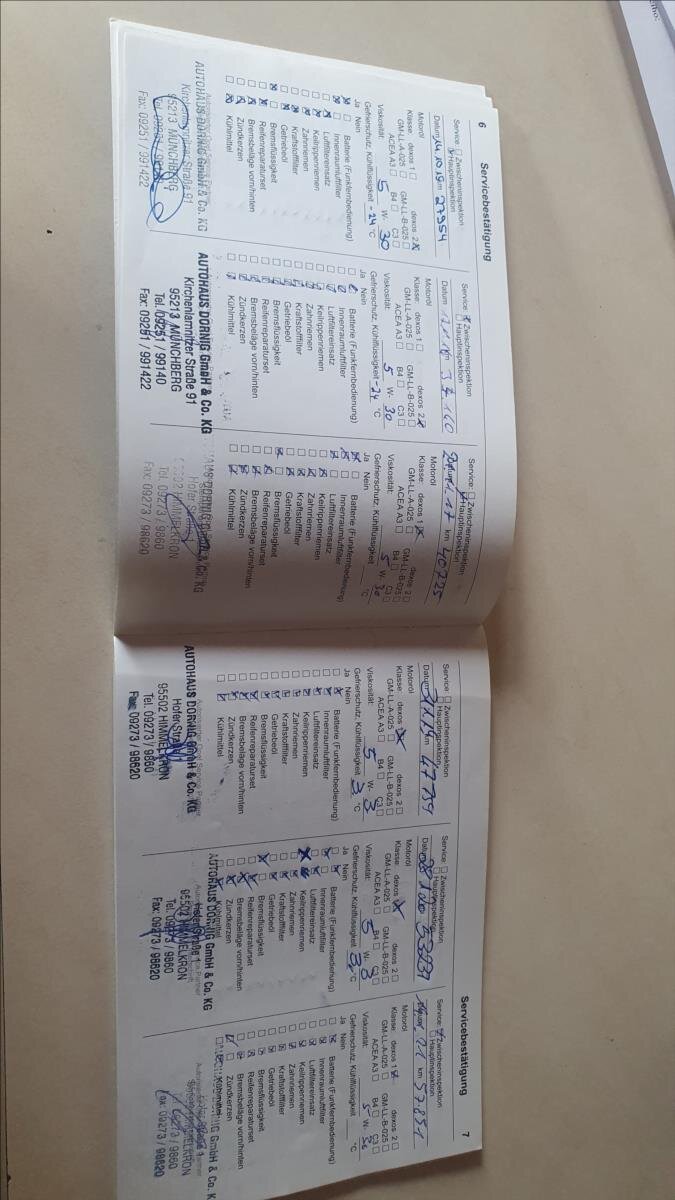 6 Servicebestätigung
Service: Zwischeninspektion
Hauptinspektion
Datum km 27954
Motoröl
Klasse: dexos 1 dexos 2
GM-LL-A-025 GM-LL-B-025
ACEA A3 B4 C3
Viskosität: 5 W- 30
Gefrierschutz, Kühlflüssigkeit -24 °C
Ja Nein
Batterie (Funkfernbedienung)
Innenraumluftfilter
Luftfiltereinsatz
Keilrippenriemen
Zahnriemen
Kraftstofffilter
Getriebeöl
Bremsflüssigkeit
Reifenreparaturset
Bremsbeläge vorn/hinten
Zündkerzen
Kühlmittel
AUTOHAUS DORNIG GmbH & Co. KG
Kirchenlamnitzer Straße 91
95213 MÜNCHBERG
Fax: 09251 / 991422
Service: Zwischeninspektion
Hauptinspektion
Datum km 37160
Motoröl
Klasse: dexos 1 dexos 2
GM-LL-A-025 GM-LL-B-025
ACEA A3 B4 C3
Viskosität: 5 W- 30
Gefrierschutz, Kühlflüssigkeit -24 °C
Ja Nein
Batterie (Funkfernbedienung)
Innenraumluftfilter
Luftfiltereinsatz
Keilrippenriemen
Zahnriemen
Kraftstofffilter
Getriebeöl
Bremsflüssigkeit
Reifenreparaturset
Bremsbeläge vorn/hinten
Zündkerzen
Kühlmittel
AUTOHAUS DORNIG GmbH & Co. KG
Kirchenlamnitzer Straße 91
95213 MÜNCHBERG
Tel. 09251 / 99140
Fax: 09251 / 991422
Service: Zwischeninspektion
Hauptinspektion
Datum km 40725
Motoröl
Klasse: dexos 1 dexos 2
GM-LL-A-025 GM-LL-B-025
ACEA A3 B4 C3
Viskosität: 5 W- 30
Gefrierschutz, Kühlflüssigkeit °C
Ja Nein
Batterie (Funkfernbedienung)
Innenraumluftfilter
Luftfiltereinsatz
Keilrippenriemen
Zahnriemen
Kraftstofffilter
Getriebeöl
Bremsflüssigkeit
Reifenreparaturset
Bremsbeläge vorn/hinten
Zündkerzen
Kühlmittel
HIMMELKRON
Tel. 09273 / 9860
Fax: 09273 / 98620
Servicebestätigung 7
Service: Zwischeninspektion
Hauptinspektion
Datum km 47759
Motoröl
Klasse: dexos 1 dexos 2
GM-LL-A-025 GM-LL-B-025
ACEA A3 B4 C3
Viskosität: 5 W- 3
Gefrierschutz, Kühlflüssigkeit °C
Ja Nein
Batterie (Funkfernbedienung)
Innenraumluftfilter
Luftfiltereinsatz
Keilrippenriemen
Zahnriemen
Kraftstofffilter
Getriebeöl
Bremsflüssigkeit
Reifenreparaturset
Bremsbeläge vorn/hinten
Zündkerzen
Kühlmittel
Autorisierter Opel Service Partner
AUTOHAUS DORNIG GmbH & Co. KG
Hofer Straße 1
95502 HIMMELKRON
Tel. 09273 / 9860
Fax: 09273 / 98620
Service: Zwischeninspektion
Hauptinspektion
Datum
Motoröl
Klasse: dexos 1 dexos 2
GM-LL-A-025 GM-LL-B-025
ACEA A3 B4 C3
Viskosität: 5 W-
Gefrierschutz, Kühlflüssigkeit °C
Ja Nein
Batterie (Funkfernbedienung)
Innenraumluftfilter
Luftfiltereinsatz
Keilrippenriemen
Zahnriemen
Kraftstofffilter
Getriebeöl
Bremsflüssigkeit
Reifenreparaturset
Bremsbeläge vorn/hinten
Zündkerzen
Kühlmittel
AUTOHAUS DORNIG GmbH & Co. KG
Hofer Straße 1
95502 HIMMELKRON
Tel. 09273 / 9860
Fax: 09273 / 98620
Service: Zwischeninspektion
Hauptinspektion
km 57851
Motoröl
Klasse: dexos 1 dexos 2
GM-LL-A-025 GM-LL-B-025
ACEA A3 B4 C3
Viskosität: 5 W- 30
Gefrierschutz, Kühlflüssigkeit °C
Ja Nein
Batterie (Funkfernbedienung)
Innenraumluftfilter
Luftfiltereinsatz
Keilrippenriemen
Zahnriemen
Kraftstofffilter
Getriebeöl
Bremsflüssigkeit
Reifenreparaturset
Bremsbeläge vorn/hinten
Zündkerzen
Kühlmittel
GmbH & Co. K
/ 9860
Fax: 09273 / 98620